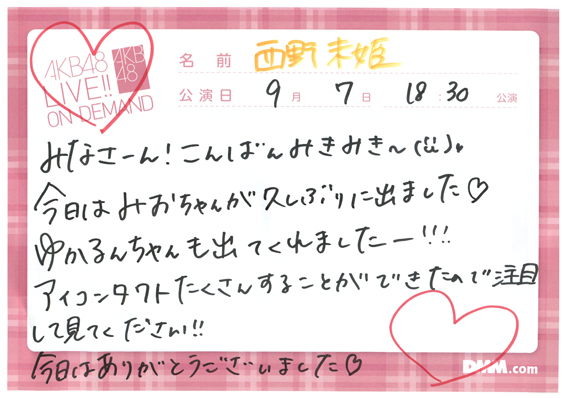 AKB48
LIVE!!
ON DEMAND
AKB
48
名前 西野未姫
公演日 9月 7日 18:30 公演
みなさーん!こんばんみきみき〜(ü)♥
今日はみおちゃんが久しぶりに出ました♡
ゆかるんちゃんも出てくれましたー!!!
アイコンタクトたくさんすることができたので注目
して見てください!!
今日はありがとうございました♡
DMM.com